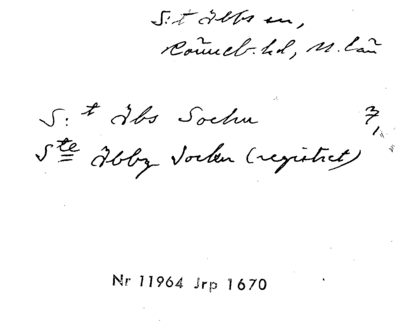 S:t Ibbs sn,
Rönneb. hd, M. län
S:t Ibs Sochn 3/1
Ste Ibby Sochn (registret)
Nr 11964 Jrp 1670